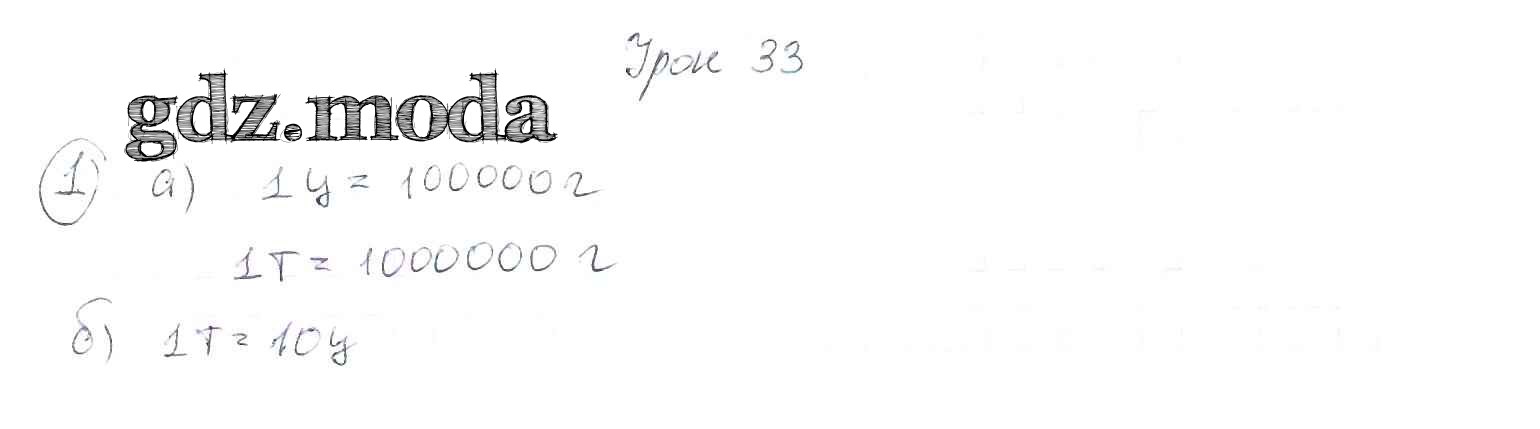 Урок 33
gdz.moda
1 а) 1 ц = 100000 г
1 т = 1000000 г
б) 1 т = 10 ц